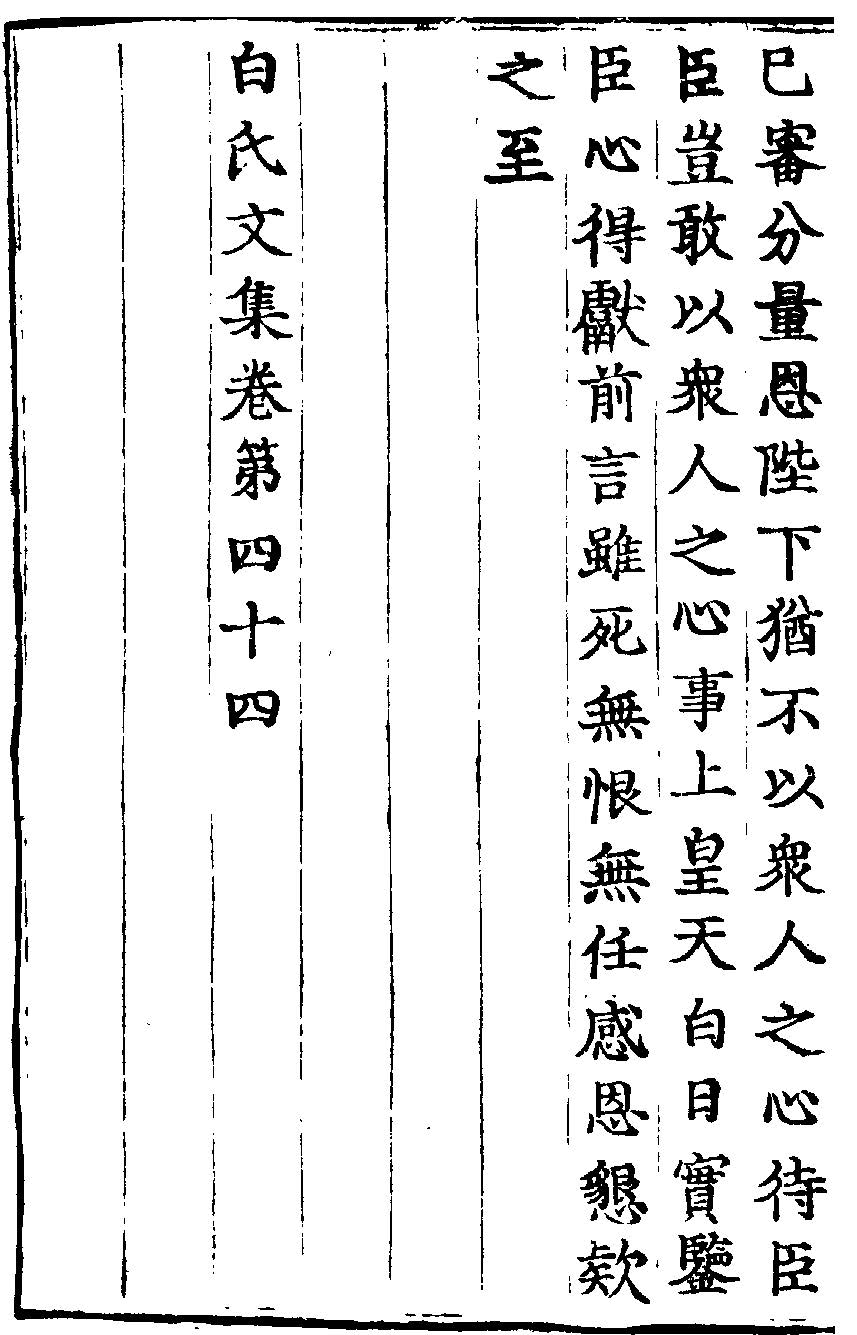 已審分量恩陛下猶不以衆人之心待臣
臣豈敢以衆人之心事上皇天白日實鑒
臣心得獻前言雖死無恨無任感恩懇欵
之至
白氏文集卷第四十四